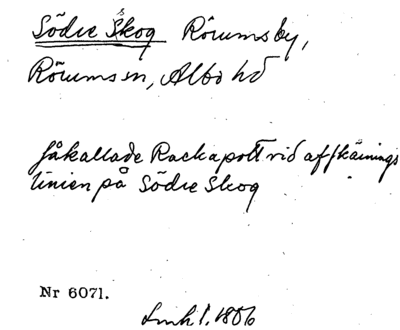 Södre Skog Rörums by,
Rörums sn, Albo hd
såkallade Rackapott vid afskärnings
linien på Södre Skog
Nr 6071.
1806